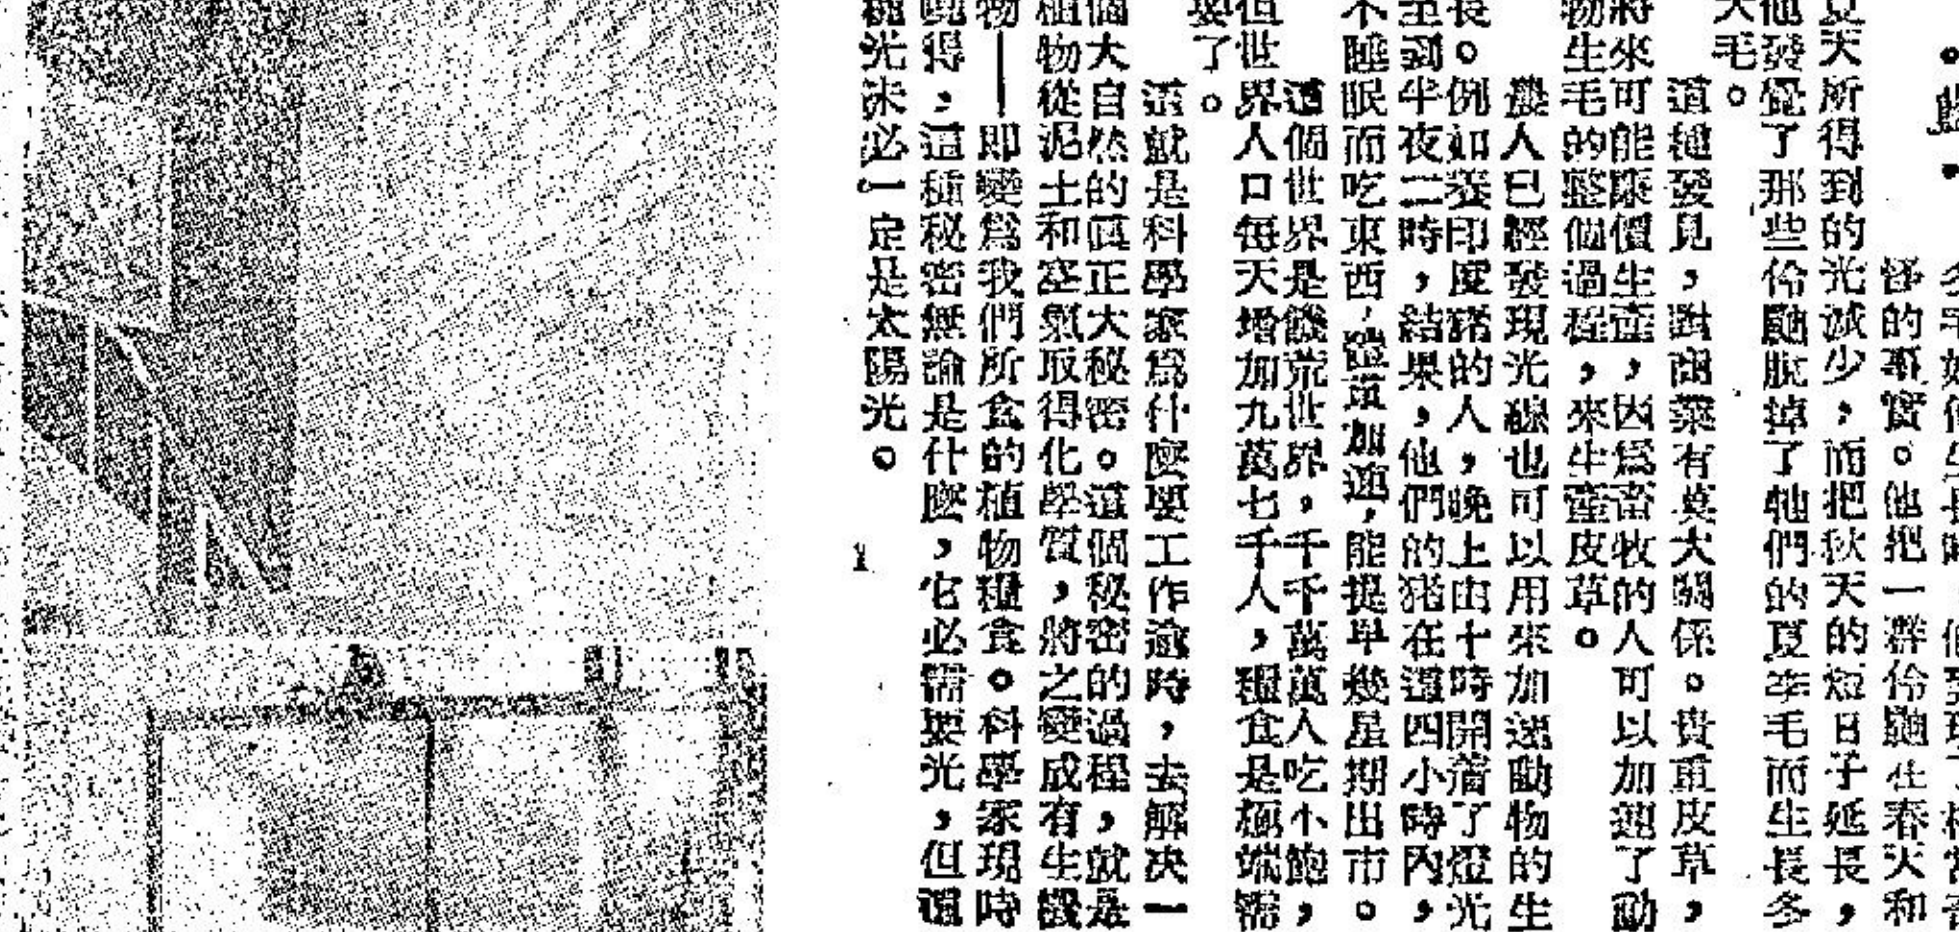 怪的事實。他把一群伶鼬在春天和
夏天所得到的光減少,而把秋天的短日子延長,
他發覺了那些伶鼬脫掉了牠們的夏季毛而生長多
天毛。
這種發見,對商業有莫大關係。貴重皮草,
將來可能廉價生產,因為畜牧的人可以加速了動
物生毛的整個過程,來生產皮草。
農人已經發現光線也可以用來加速動物的生
長。例如養印度豬的人,晚上由十時開着了燈光
至到半夜二時,結果,他們的豬在這四小時內,
不睡眠而吃東西,體重加速,能提早幾星期出市。
這個世界是饑荒世界,千千萬萬人吃不飽,
但世界人口每天增加九萬七千人,糧食是極端需
要了。
這就是科學家為什麼要工作逾時,去解決一
個大自然的真正大秘密。這個秘密的過程,就是
植物從泥土和空氣取得化學質,將之變成有生機
物——即變為我們所食的植物糧食。科學家現時
曉得,這種秘密無論是什麼,它必需要光,但這
種光未必一定是太陽光。